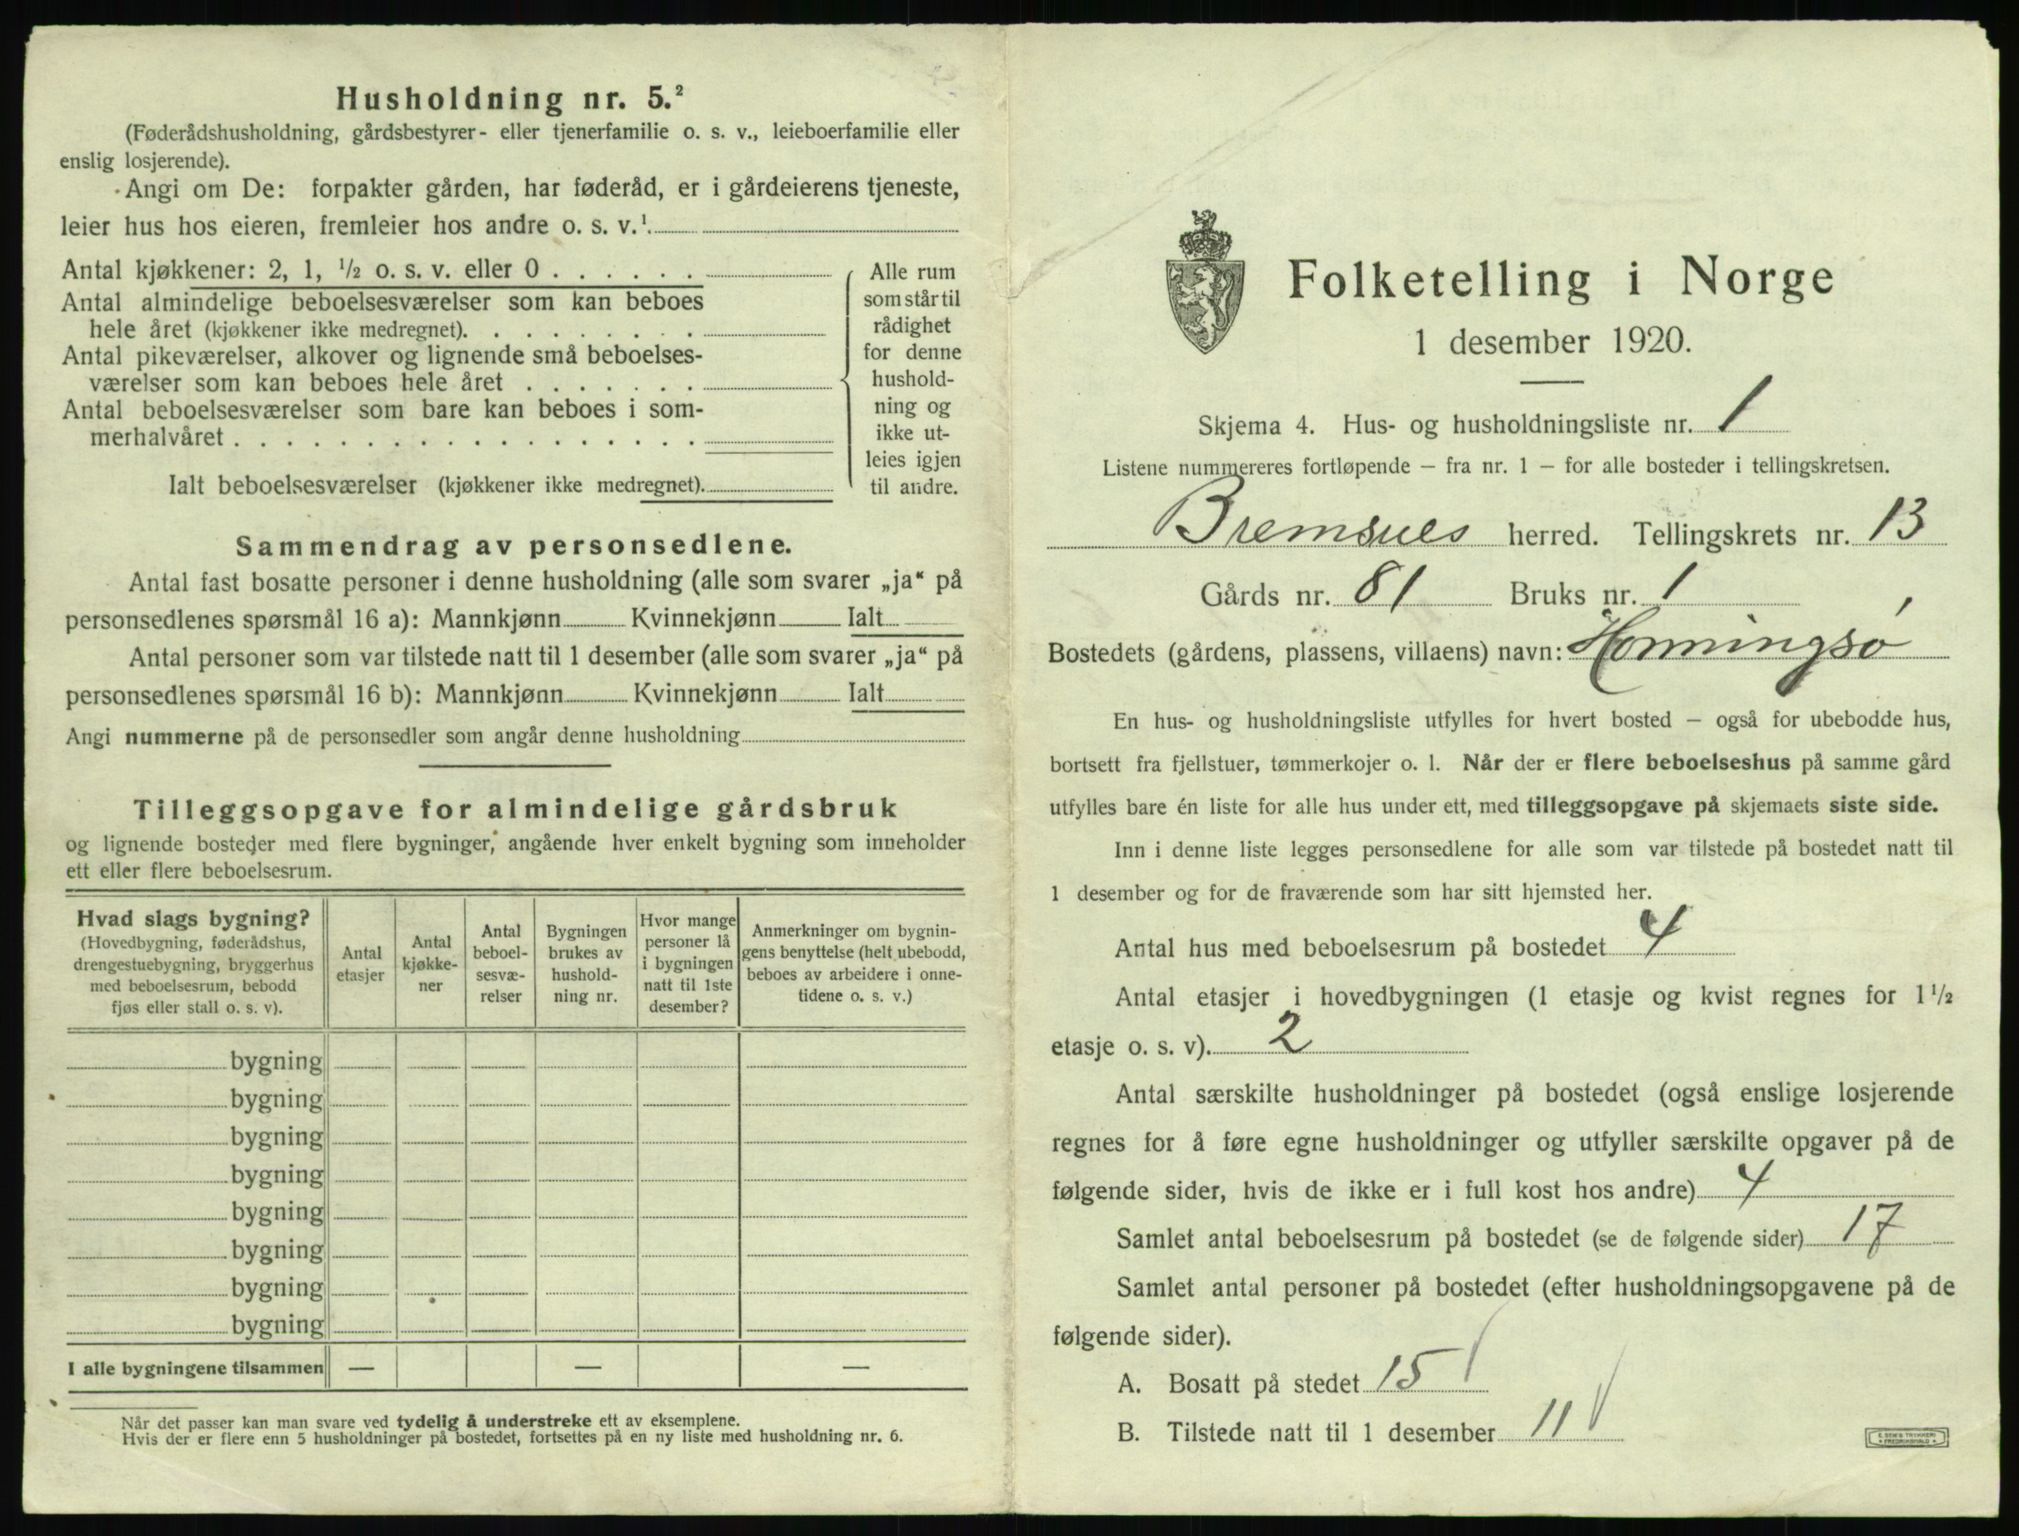 Husholdning nr. 5.²
(Føderådshusholdning, gårdsbestyrer- eller tjenerfamilie o. s. v., leieboerfamilie eller
enslig losjerende).
Angi om De: forpakter gården, har føderåd, er i gårdeierens tjeneste,
leier hus hos eieren, fremleier hos andre o. s. v.¹
Antal kjøkkener: 2, 1, ½ o. s. v. eller 0 . . . . . .
Antal almindelige beboelsesværelser som kan beboes
hele året (kjøkkener ikke medregnet). . . . . . . . .
Antal pikeværelser, alkover og lignende små beboelses-
værelser som kan beboes hele året . . . . . . .
Antal beboelsesværelser som bare kan beboes i som-
merhalvåret . . . . . . . . . . . . . . . . . .
Ialt beboelsesværelser (kjøkkener ikke medregnet).
Alle rum
som står til
rådighet
for denne
hushold-
ning og
ikke ut-
leies igjen
til andre.
Sammendrag av personsedlene.
Antal fast bosatte personer i denne husholdning (alle som svarer „ja“ på
personsedlenes spørsmål 16 a): Mannkjønn Kvinnekjønn Ialt
Antal personer som var tilstede natt til 1 desember (alle som svarer „ja“ på
personsedlenes spørsmål 16 b): Mannkjønn Kvinnekjønn Ialt
Angi nummerne på de personsedler som angår denne husholdning
Tilleggsopgave for almindelige gårdsbruk
og lignende bosteder med flere bygninger, angående hver enkelt bygning som inneholder
ett eller flere beboelsesrum.
Hvad slags bygning?
(Hovedbygning, føderådshus,
drengestuebygning, bryggerhus
med beboelsesrum, bebodd
fjøs eller stall o. s. v).
Antal
etasjer
Antal
kjøkke-
ner
Antal
beboel-
sesvæ-
relser
Bygningen
brukes av
hushold-
ning nr.
Hvor mange
personer lå
i bygningen
natt til 1ste
desember?
Anmerkninger om bygnin-
gens benyttelse (helt ubebodd,
beboes av arbeidere i onne-
tidene o. s. v.)
bygning
bygning
bygning
bygning
bygning
bygning
bygning
bygning
I alle bygningene tilsammen — — —
Når det passer kan man svare ved tydelig å understreke ett av eksemplene.
Hvis der er flere enn 5 husholdninger på bostedet, fortsettes på en ny liste med husholdning nr. 6.
Folketelling i Norge
1 desember 1920.
Skjema 4. Hus- og husholdningsliste nr. 1
Listene nummereres fortløpende – fra nr. 1 – for alle bosteder i tellingskretsen.
Bremsnes herred. Tellingskrets nr. 13
Gårds nr. 81 Bruks nr. 1
Bostedets (gårdens, plassens, villaens) navn: Honningsø
En hus- og husholdningsliste utfylles for hvert bosted – også for ubebodde hus,
bortsett fra fjellstuer, tømmerkojer o. l. Når der er flere beboelseshus på samme gård
utfylles bare én liste for alle hus under ett, med tilleggsopgave på skjemaets siste side.
Inn i denne liste legges personsedlene for alle som var tilstede på bostedet natt til
1 desember og for de fraværende som har sitt hjemsted her.
Antal hus med beboelsesrum på bostedet 4
Antal etasjer i hovedbygningen (1 etasje og kvist regnes for 1½
etasje o. s. v). 2
Antal særskilte husholdninger på bostedet (også enslige losjerende
regnes for å føre egne husholdninger og utfyller særskilte opgaver på de
følgende sider, hvis de ikke er i full kost hos andre) 4
Samlet antal beboelsesrum på bostedet (se de følgende sider) 17
Samlet antal personer på bostedet (efter husholdningsopgavene på de
følgende sider).
A. Bosatt på stedet 15
B. Tilstede natt til 1 desember 11
E. SEM'S TRYKKERI
FREDRIKSHALD